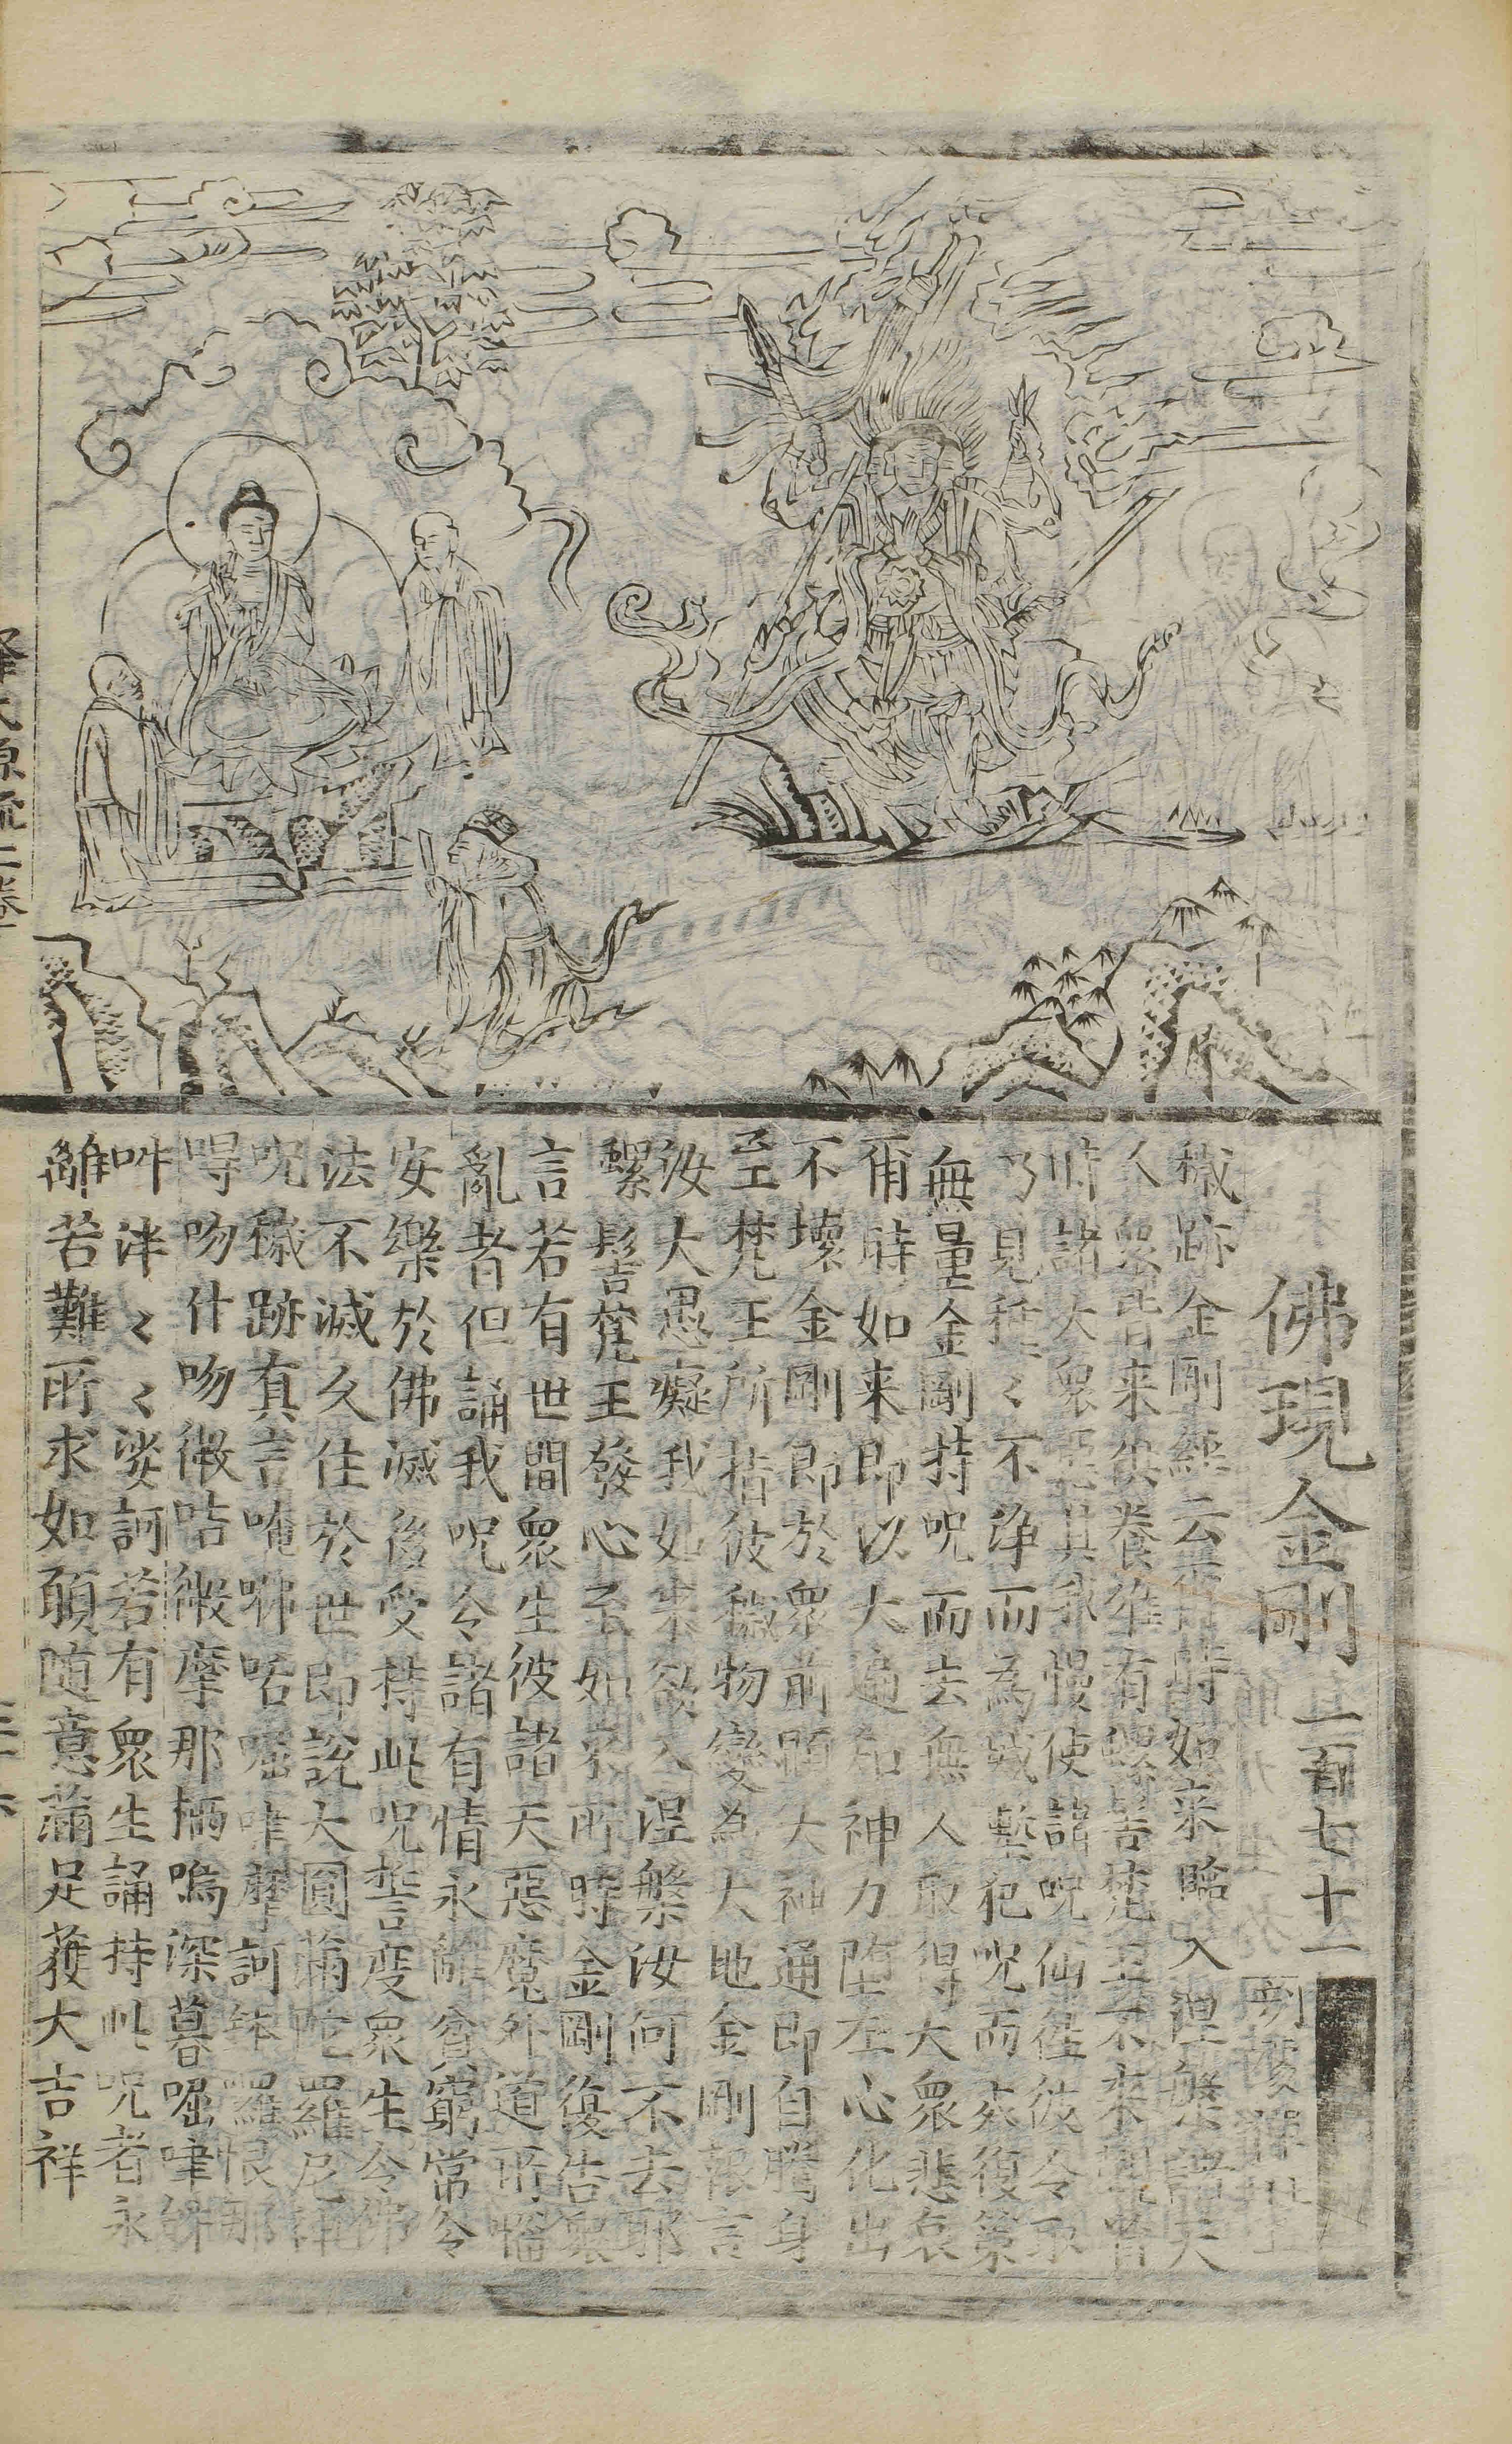 佛現金剛 一百七十一
穢跡金剛經云尒時如来臨入涅槃諸天
人衆皆来供養唯有螺髻梵王不来覲省
时諸大衆 其我慢使諸呪仙徃彼令取
乃見種〻不淨而為城塹犯呪而 復策
無量金剛持呪而去無人取得大衆悲哀
甫時如来即以大遍知神力随左心化出
不壞金剛即於衆前顯大神通即自騰身
至梵王所指彼穢物變為大地金剛報言
汝大愚癡我如来欲入涅槃汝何不去耶
螺髻梵王發心至如来所時金剛復告衆
言若有世間衆生彼諸天惡魔外道所惱
亂者但誦我呪令諸有情永離貧窮常令
安樂於佛滅後受持此呪誓度衆生令佛
法不滅久住於世即說大圓滿陀羅尼神
呪穢跡真言唵𠲽咶啒㖀摩訶鉢羅恨那
㖶吻什吻微咭微摩那栖嗚深暮啒㖀鉢
吽泮〻〻娑訶若有衆生誦持此呪者永
離苦難所求如願随意滿足獲大吉祥
釋氏原流二卷